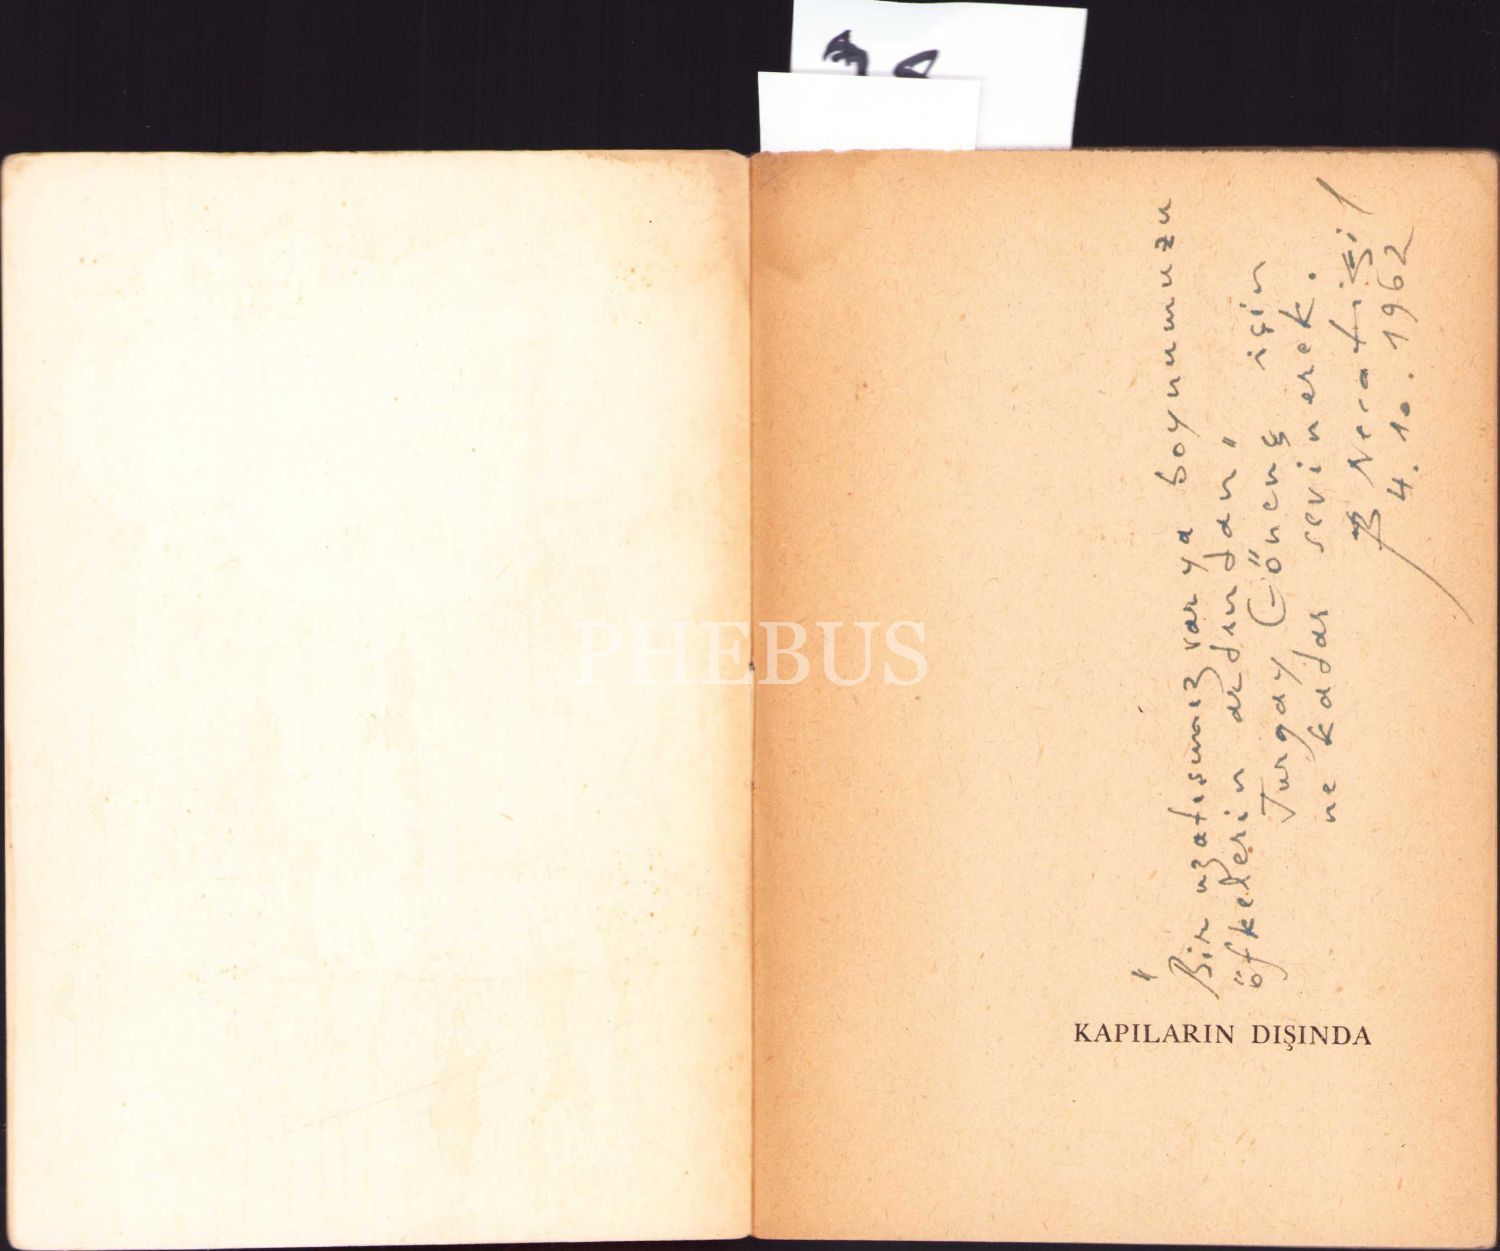 "Bir uzatışımız var ya boynumuzu
öfkelerin ardından"
Turgay Gönenç için
ne kadar sevinerek.
B Necatigil
4.10.1962
KAPILARIN DIŞINDA
PHEBUS